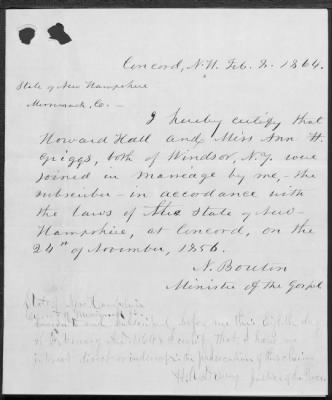 Concord, N.H. Feb. 2. 1864.
State of New Hampshire
Merrimack, Co. —
I hereby certify that
Howard Hall and Miss Ann H.
Griggs, both of Windsor, N.Y. were
joined in marriage by me, - the
subscriber - in accordance with
the laws of the State of New-
Hampshire, at Concord, on the
24th of November, 1856.
N. Bouton
Minister of the Gospel
State of New Hampshire
County of Merrimack
Sworn to and subscribed before me this Eighth day
of February A.D. 1864 & I certify that I have no
interest direct or indirect in the prosecution of this claim
Justice of the Peace